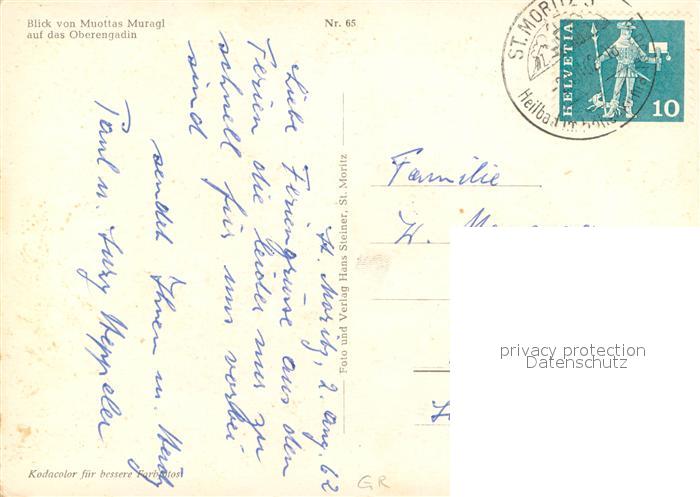 Blick von Muottas Muragl
auf das Oberengadin
Nr. 65
ST. MORITZ 3
Heilbad
HELVETIA
10
St. Moritz, 2. Aug. 62
Liebe Feriengrüsse aus den
Ferien die leider nur zu
schnell für uns vorbei
sind
sendet Ihnen u.
Paul u.
Foto und Verlag Hans Steiner, St. Moritz
Familie
privacy protection
Datenschutz
Kodacolor für bessere Farbfotos
GR